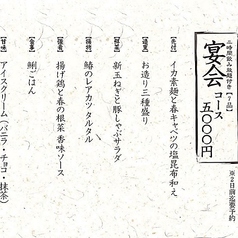 二時間飲み放題付き【9品】
宴会コース
五〇〇〇円
※2日前迄要予約
イカ素麺と春キャベツの塩昆布和え
お造り三種盛り
新玉ねぎと豚しゃぶサラダ
鰆のレアカツタルタル
揚げ鶏と春の根菜 香味ソース
鯛ごはん
アイスクリーム(バニラ・チョコ・抹茶)